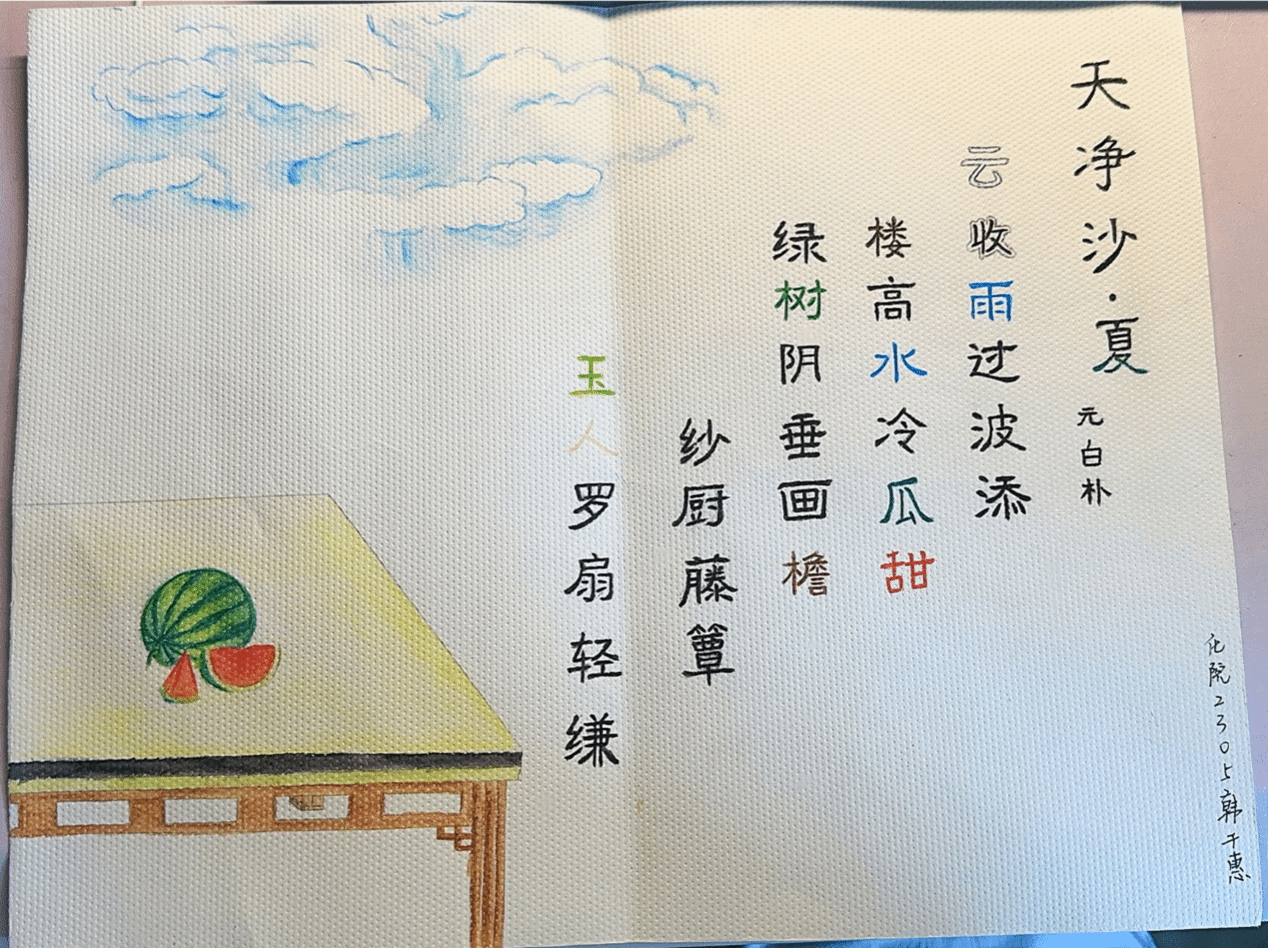 天净沙·夏
元白朴
云收雨过波添
楼高水冷瓜甜
绿树阴垂画檐
纱厨藤簟
玉人罗扇轻缣
化院2305韩千惠